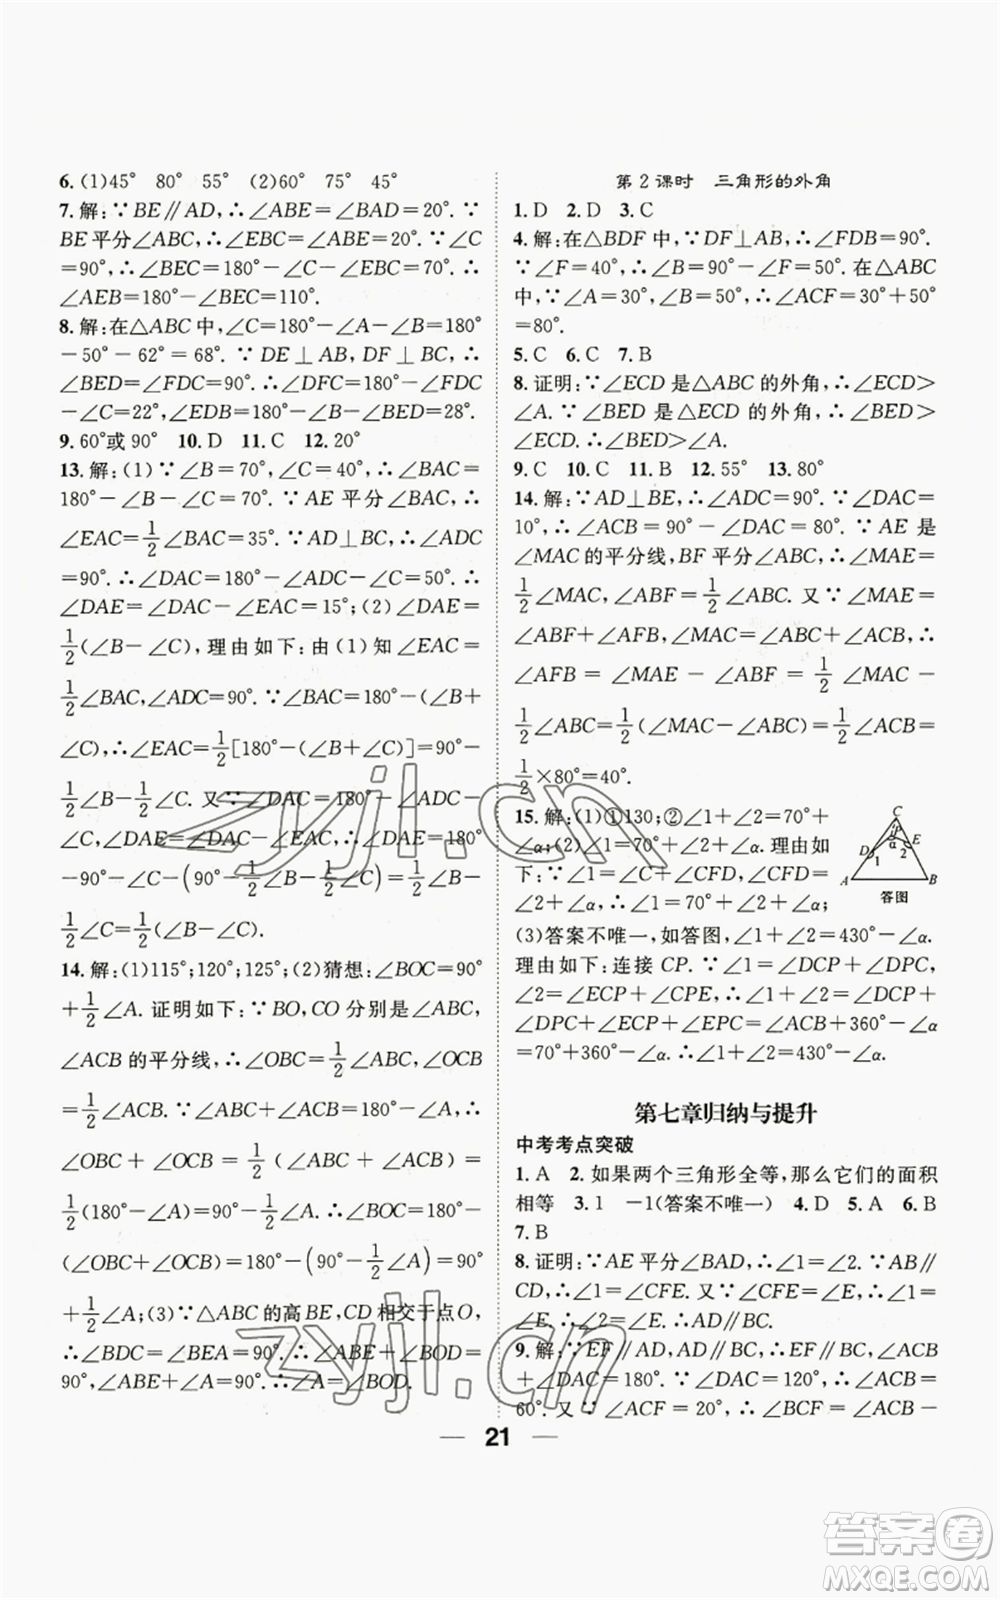 6. (1)45° 80° 55° (2)60° 75° 45°
7. 解:∵BE∥AD,∴∠ABE=∠BAD=20°.∵
BE平分∠ABC,∴∠EBC=∠ABE=20°.∵∠C
=90°,∴∠BEC=180°-∠C-∠EBC=70°.∴
∠AEB=180°-∠BEC=110°.
8. 解:在△ABC中,∠C=180°-∠A-∠B=180°
-50°-62°=68°.∵DE⊥AB,DF⊥BC,∴
∠BED=∠FDC=90°.∴∠DFC=180°-∠FDC
-∠C=22°,∠EDB=180°-∠B-∠BED=28°.
9. 60°或90° 10. D 11. C 12. 20°
13. 解:(1)∵∠B=70°,∠C=40°,∴∠BAC=
180°-∠B-∠C=70°.∵AE平分∠BAC,∴
∠EAC=1/2∠BAC=35°.∵AD⊥BC,∴∠ADC
=90°.∴∠DAC=180°-∠ADC-∠C=50°.∴
∠DAE=∠DAC-∠EAC=15°;(2)∠DAE=
1/2(∠B-∠C),理由如下:由(1)知∠EAC=
1/2∠BAC,∠ADC=90°.∵∠BAC=180°-(∠B+
∠C),∴∠EAC=1/2[180°-(∠B+∠C)]=90°-
1/2∠B-1/2∠C.又∵∠DAC=180°-∠ADC-
∠C,∠DAE=∠DAC-∠EAC,∴∠DAE=180°
-90°-∠C-(90°-1/2∠B-1/2∠C)=1/2∠B-
1/2∠C=1/2(∠B-∠C).
14. 解:(1)115°;120°;125°;(2)猜想:∠BOC=90°
+1/2∠A.证明如下:∵BO,CO分别是∠ABC,
∠ACB的平分线,∴∠OBC=1/2∠ABC,∠OCB
=1/2∠ACB.∵∠ABC+∠ACB=180°-∠A,∴
∠OBC+∠OCB=1/2(∠ABC+∠ACB)=
1/2(180°-∠A)=90°-1/2∠A.∴∠BOC=180°-
(∠OBC+∠OCB)=180°-(90°-1/2∠A)=90°
+1/2∠A;(3)∵△ABC的高BE,CD相交于点O,
∴∠BDC=∠BEA=90°.∴∠ABE+∠BOD=
90°,∠ABE+∠A=90°.∴∠A=∠BOD.
第2课时 三角形的外角
1. D 2. D 3. C
4. 解:在△BDF中,∵DF⊥AB,∴∠FDB=90°.
∵∠F=40°,∴∠B=90°-∠F=50°.在△ABC
中,∵∠A=30°,∠B=50°,∴∠ACF=30°+50°
=80°.
5. C 6. C 7. B
8. 证明:∵∠ECD是△ABC的外角,∴∠ECD>
∠A.∵∠BED是△ECD的外角,∴∠BED>
∠ECD.∴∠BED>∠A.
9. C 10. C 11. B 12. 55° 13. 80°
14. 解:∵AD⊥BE,∴∠ADC=90°.∵∠DAC=
10°,∴∠ACB=90°-∠DAC=80°.∵AE是
∠MAC的平分线,BF平分∠ABC,∴∠MAE=
1/2∠MAC,∠ABF=1/2∠ABC.又∵∠MAE=
∠ABF+∠AFB,∠MAC=∠ABC+∠ACB,∴
∠AFB=∠MAE-∠ABF=1/2∠MAC-
1/2∠ABC=1/2(∠MAC-∠ABC)=1/2∠ACB=
1/2×80°=40°.
15. 解:(1)①130;②∠1+∠2=70°+
∠α;(2)∠1=70°+∠2+∠α.理由如
下:∵∠1=∠C+∠CFD,∠CFD=
∠2+∠α,∴∠1=70°+∠2+∠α;
(3)答案不唯一,如答图,∠1+∠2=430°-∠α.
理由如下:连接CP.∵∠1=∠DCP+∠DPC,
∠2=∠ECP+∠CPE,∴∠1+∠2=∠DCP+
∠DPC+∠ECP+∠CPE=∠ACB+360°-∠α
=70°+360°-∠α.∴∠1+∠2=430°-∠α.
C
P
D
E
α
1
2
A
B
答图
第七章归纳与提升
中考考点突破
1. A 2. 如果两个三角形全等,那么它们的面积
相等 3. 1 -1(答案不唯一) 4. D 5. A 6. B
7. B
8. 证明:∵AE平分∠BAD,∴∠1=∠2.∵AB∥
CD,∴∠1=∠CFE.又∵∠CFE=∠E,∴∠1=
∠E.∴∠2=∠E.∴AD∥BC.
9. 解:∵EF∥AD,AD∥BC,∴EF∥BC.∴∠ACB
+∠DAC=180°.∵∠DAC=120°,∴∠ACB=
60°.又∵∠ACF=20°,∴∠BCF=∠ACB-
21
zyjl.cn
zyjl.cn
答案圈
MXQE.COM